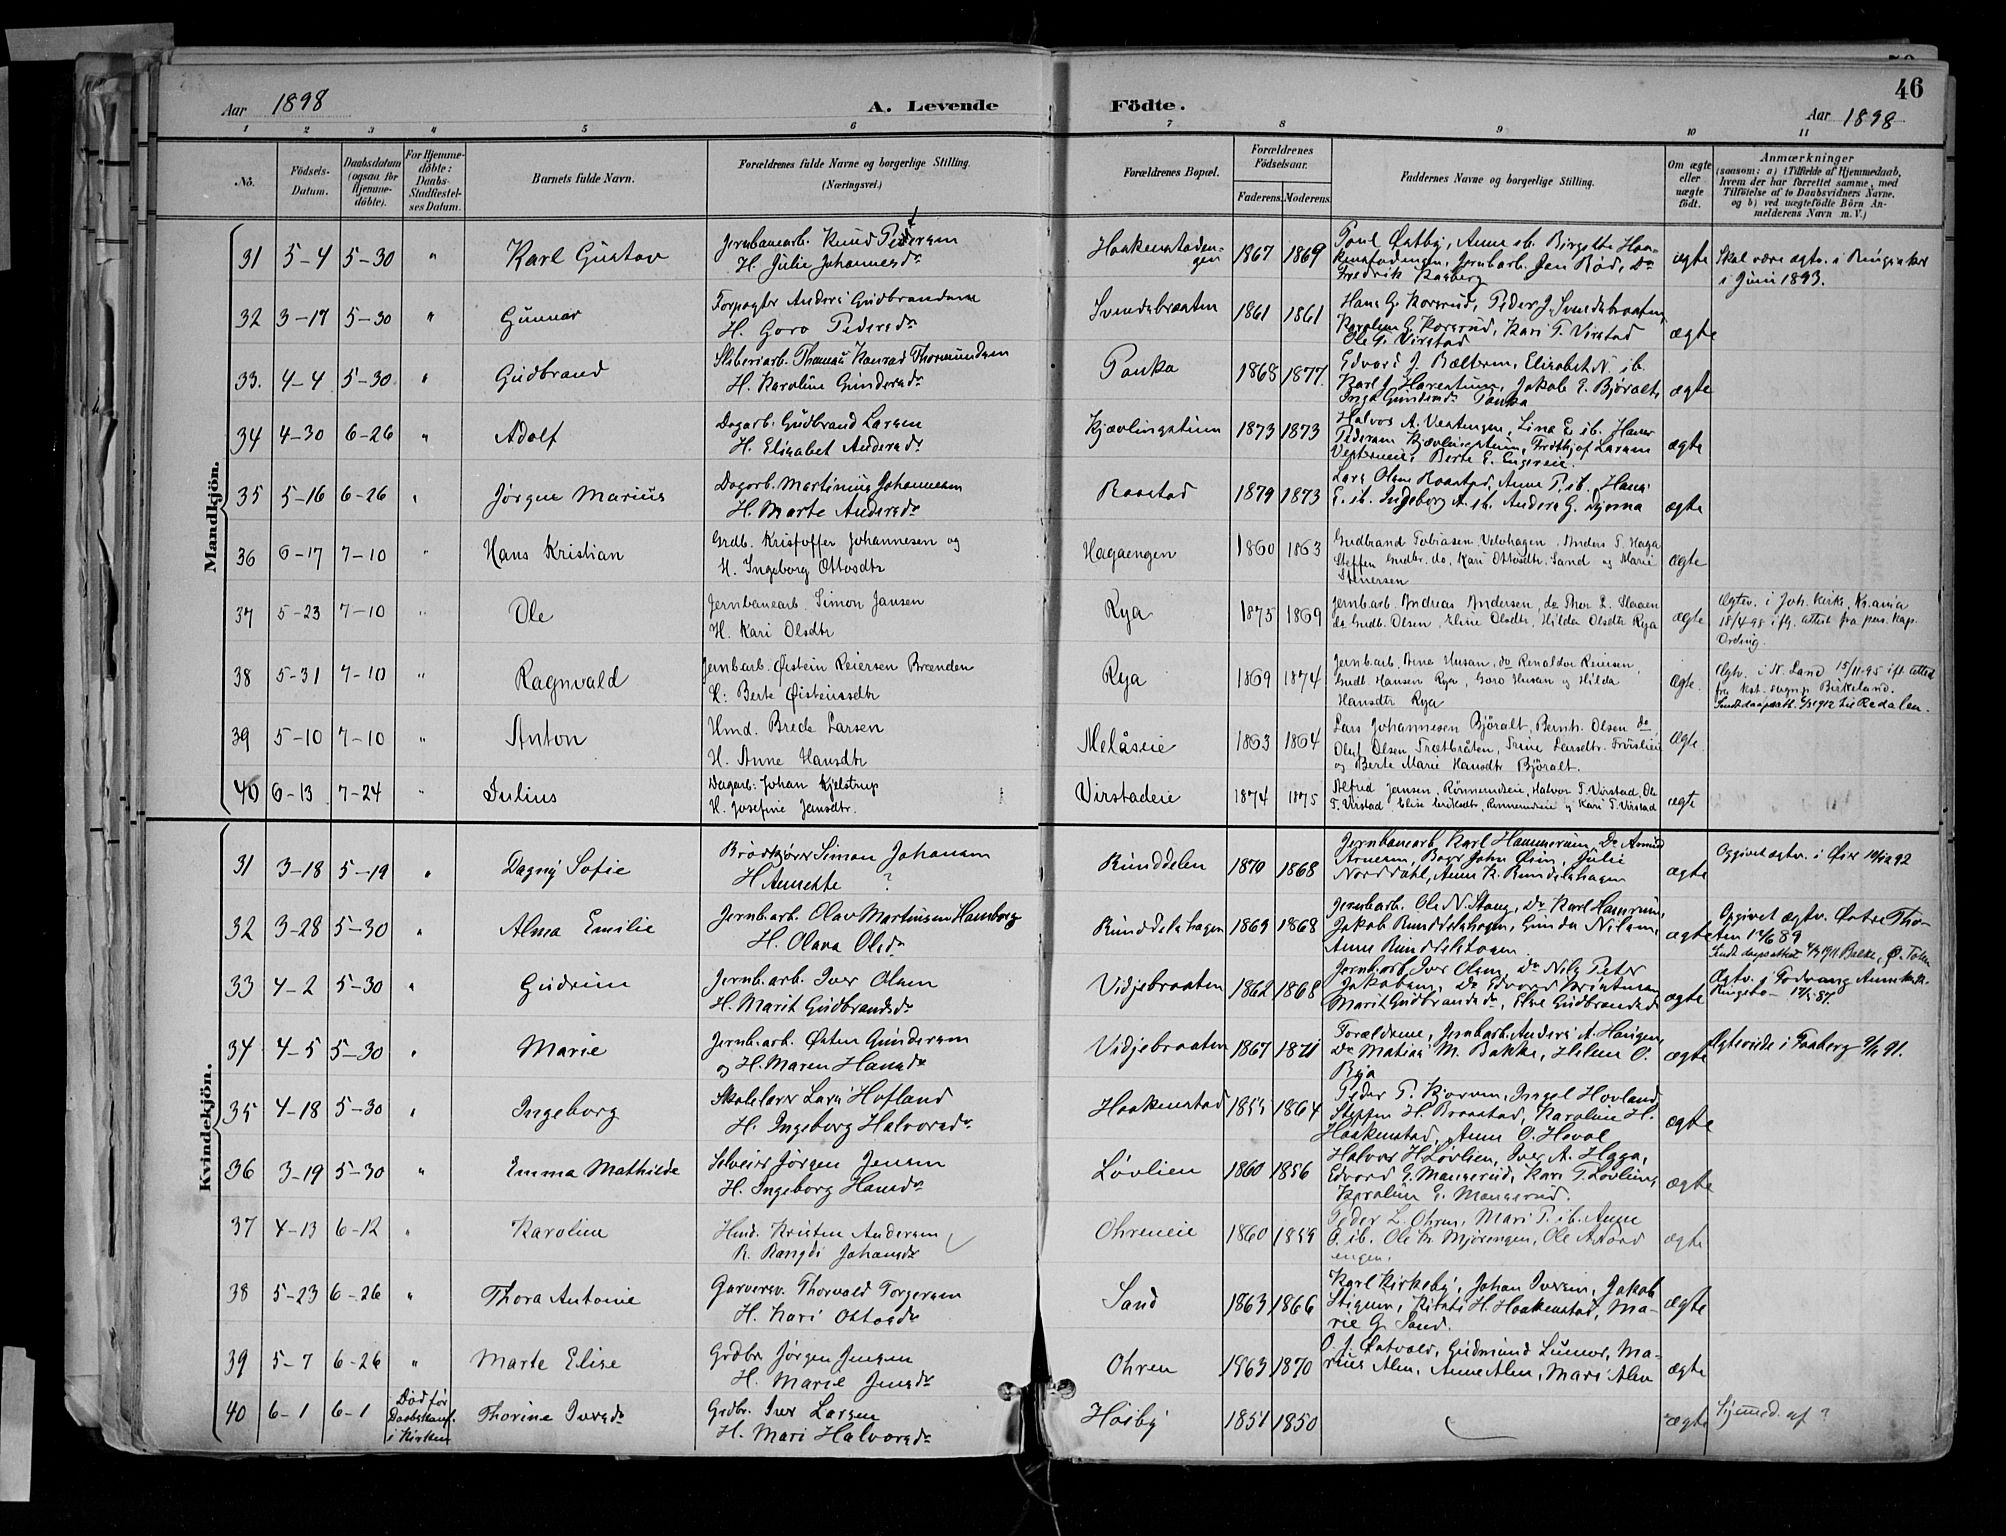 46
Aar 1898
A. Levende Födte.
Aar 1898
1 2 3 4 5 6 7 8 9 10 11
No.
Födsels-
Datum.
Daabsdatum
(ogsaa for
Hjemme-
döbte).
For Hjemme-
döbte:
Daabs-
Stadfæstel-
ses Datum.
Barnets fulde Navn.
Forældrenes fulde Navne og borgerlige Stilling.
(Næringsvei.)
Forældrenes Bopæl.
Forældrenes
Födselsaar.
Faderens. Moderens.
Faddernes Navne og borgerlige Stilling.
Om ægte
eller
uægte
født.
Anmærkninger
(saasom: a) i Tilfælde af Hjemmedaab,
hvem der har forrettet samme, med
Tilföielse af to Daabsvidners Navne.
og b) ved uægtefödte Börn An-
melderens Navn m. V.)
Mandkjön.
31 5-4 5-30 " Karl Gustav
Jernbanearb. Knud Pedersen
H. Julie Johannesdr
Haakenstaden-
gen
1867 1869
Poul Østby, Anne ib. Birgitte Haa-
kenstadengen, Jernbarb. Jon Rød, Do
Fredrik
ægte
Skal være ægtv. i Ringsaker
i Juni 1893.
32 3-17 5-30 " Gunnar
Forpagter Anders Gudbrandsen
H. Goro Pedersdr
Svendsbraaten 1861 1861
Hans G. Korsrud, Peder J. Svendsbraaten,
Karoline G. Korsrud, Kari T. Virstad
Ole G. Virstad
ægte
33. 4-4 5-30 " Gudbrand
Sliberiarb. Thomas Konrad Thormundsen
H. Karoline Gundersdr
Panka 1868 1877
Edvard J. Bælterm, Elisabet N. ib.
Karl J. Harestuen, Jakob E. Bjøralt,
Inga Gundersdr Panka
ægte
34 4-30 6-26 " Adolf
Dagarb. Gudbrand Larsen
H. Elisabet Andersdr
Kjævlingstuen 1873 1873
Halvor A. Vestengen, Lina E. ib. Hans
Pedersen Kjævlingstuen, Fridtjof Larsen
Berte E. Engereie.
ægte
35 5-16 6-26 " Jørgen Marius
Dagarb. Martinius Johannesen
H. Marte Andersdr
Raastad 1879 1873
Lars Olsen Raastad, Anne P. ib., Hans
E. ib. Ingeborg A. ib. Anders G. Djorna
ægte
36 6-17 7-10 " Hans Kristian
Grdb. Kristoffer Johannesen og
H. Ingeborg Ottosdtr
Hagaengen 1860 1863
Gudbrand Tobiasen Velvhagen, Anders T. Haga
Steffen Gudbr. do, Kari Ottosdtr. Sand og Marie
Stenersen
ægte
37 5-23 7-10 " Ole
Jernbanearb. Simon Jansen
H. Kari Olsdtr
Rya 1875 1869
Jernbarb. Andreas Andersen, do Thor L. Haaen
do Gudb. Olsen, Eline Olsdtr, Hilda Olsdtr Rya
ægte
Ægtev. i Joh. Kirke, Kr.ania
18/4-98 ifg. attest fra pers. kap.
Ording.
38 5-31 7-10 " Ragnvald
Jernbarb. Øistein Reiersen Brænden
H: Berte Øisteinsdtr
Rya 1869 1874
Jernbarb. Arne Husan, do Renaldor Reiersen,
Gudb. Hansen Rya, Goro Husan og Hilda
Hansdtr Rya
ægte.
Ægtv. i N. Land 15/11-95 ift. attest
fra kst. sognp. Birkeland.
1912 til Redalen.
39 5-10 7-10 " Anton
Hmd. Brede Larsen
H. Anne Hansdtr
Melåseie 1863 1864
Lars Johannesen Björalt, Bernh. Olsen do
Oluf Olsen Trætbråten, Trine Larsdtr. Fröislie
og Berte Marie Hansdtr Björalt.
ægte
40 6-13 7-24 " Julius
Dagarb: Johan Kjelstrup
H. Josefine Jansdtr.
Virstadeie 1874 1875
Alfred Jansen, Rönnerudeie, Halvor T. Virstad, Ole
T. Virstad Elise Rönnerudeie og Kari T. Virstad
ægte
Kvindekjön.
31 3-18 5-19 " Dagny Sofie
Brödkjörer Simon Johansen
H Annette ?
Runddelen 1870 1868
Jernbanearb. Karl Hammerum, Do Amund
Arnesen, Bager John Øien, Julie
Norddahl, Anne K. Rundelshagen
ægte
Opgivet ægtv. i Øier 1892
32 3-28 5-30 " Alma Emilie
Jernb.arb. Olav Martinsen Hamborg
H. Olava Olsdr
Runddelshagen 1869 1868
Jernbarb. Ole N. Stang, Do Karl Hamrum,
Jakob Runddelshagen, Gunda Nilsen,
Anne Runddelshagen
ægte
Opgivet ægtv. Østre Tho-
ten 12/6 89
1911 Balke, Ø. Toten
33 4-2 5-30 " Gudrun
Jernb.arb. Iver Olsen
H. Marit Gudbrandsdr
Vidjebraaten 1862 1868
Jernb.arb. Iver Olsen, Do Nils Peter
Jakobsen, Do Edvard Kristiansen
Marit Gudbrandsdr, Eline Gudbrandsdr
ægte
Ægtv. i Fodvang Anneks.
Ringebo - 87.
34 4-5 5-30 " Marie
Jernb.arb. Østen Gundersen
og H. Maren Hansdr
Vidjebraaten 1867 1871
Forældrene, Jernbarb. Anders A. Haugen,
Do Matias M. Bakke, Helene O.
Rya
ægte
Ægteviede i Faaberg 91.
35 4-18 5-30 " Ingeborg
Skolelærer Lars Hofland
H. Ingeborg Halvorsdr
Haakenstad 1859 1864
Peder P. Kjorven, Ingel Hovland
Steffen H. Braastad, Karoline H.
Haakenstad, Anne O. Hovol
ægte
36 3-19 5-30 " Emma Mathilde
Selveier Jørgen Jensen
H. Ingeborg Hansdr
Løvlien 1860 1856
Halvor H. Løvlien, Iver A. Haga,
Edvard G. Mangerud, Kari T. Løvlien,
Karoline E. Mangerud.
ægte
37 4-13 6-12 " Karoline
Hmd. Kristen Andersen
H. Rangdi Johansdr
Ohreneie 1860 1859
Peder L. Ohren, Mari P. ib. Anne
O. ib. Ole Kr. Mjørengen, Ole
engen.
ægte
38 5-23 6-26 " Thora Antonie
Garversv. Thorvald Torgersen
H. Kari Ottosdr
Sand 1863 1866
Karl Kirkeby, Johan Iversen, Jakob
Stigum, H. Haakenstad, Ma-
rie G. Sand.
ægte
39 5-7 6-26 " Marte Elise
Grdbr Jørgen Jensen
H. Marie Jensdr
Ohren 1863 1870
O. J. Østvold, Gudmund Lunner, Ma-
rius Alm, Anne Alm, Mari Alm
ægte
40 6-1 6-1
Död før
Daabskauf.
i Kirken
Thorine Iversdr
Grdbr. Iver Larsen
H. Mari Halvorsdr
Høiby 1851 1850
ægte
Hjemmed. af ?